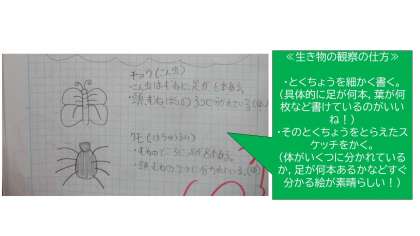 チョウ(こん虫)
こん虫はむねに足が6本ある。
・頭、むね、はら 3つに分かれている
クモ
足が8本ある。
分かれている
≪生き物の観察の仕方≫
・とくちょうを細かく書く。
(具体的に足が何本、葉が何
枚など書けているのがいい
ね！)
・そのとくちょうをとらえたス
ケッチをかく。
(体がいくつに分かれている
か、足が何本あるかなどすぐ
分かる絵が素晴らしい！)